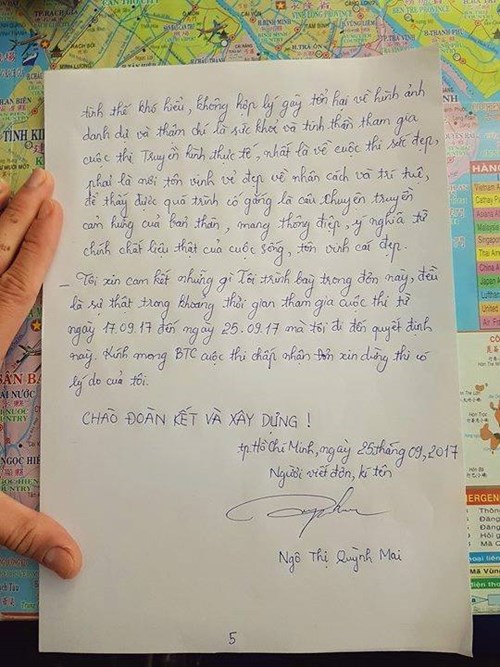 tình thế khó hiểu, không hợp lý gây tổn hại về hình ảnh
danh dự và thậm chí là sức khỏe và tinh thần tham gia
cuộc thi Truyền hình thực tế, nhất là về cuộc thi sắc đẹp,
phải là nơi tôn vinh vẻ đẹp về nhân cách và trí tuệ,
để thấy được quá trình cố gắng là câu chuyện truyền
cảm hứng của bản thân, mang thông điệp, ý nghĩa từ
chính chất liệu thật của cuộc sống, tôn vinh cái đẹp.
- Tôi xin cam kết những gì Tôi trình bày trong đơn này, đều
là sự thật trong khoảng thời gian tham gia cuộc thi từ
ngày 17.09.17 đến ngày 25.09.17 mà tôi đi đến quyết định
này. Kính mong BTC cuộc thi chấp nhận xin dừng thi có
lý do của tôi.
CHÀO ĐOÀN KẾT VÀ XÂY DỰNG !
tp Hồ Chí Minh, ngày 25 tháng 09, 2017
Người viết đơn, kí tên
Ngô Thị Quỳnh Mai
5
TỈNH KI
HÃNG
Vietnam
Cathay Pa
Asiana
Malaysia
Singapore
Thai Air
China A
Lufthansa
United
Air F
NGỌC HIỂ
ERGEN
Mã Vùn